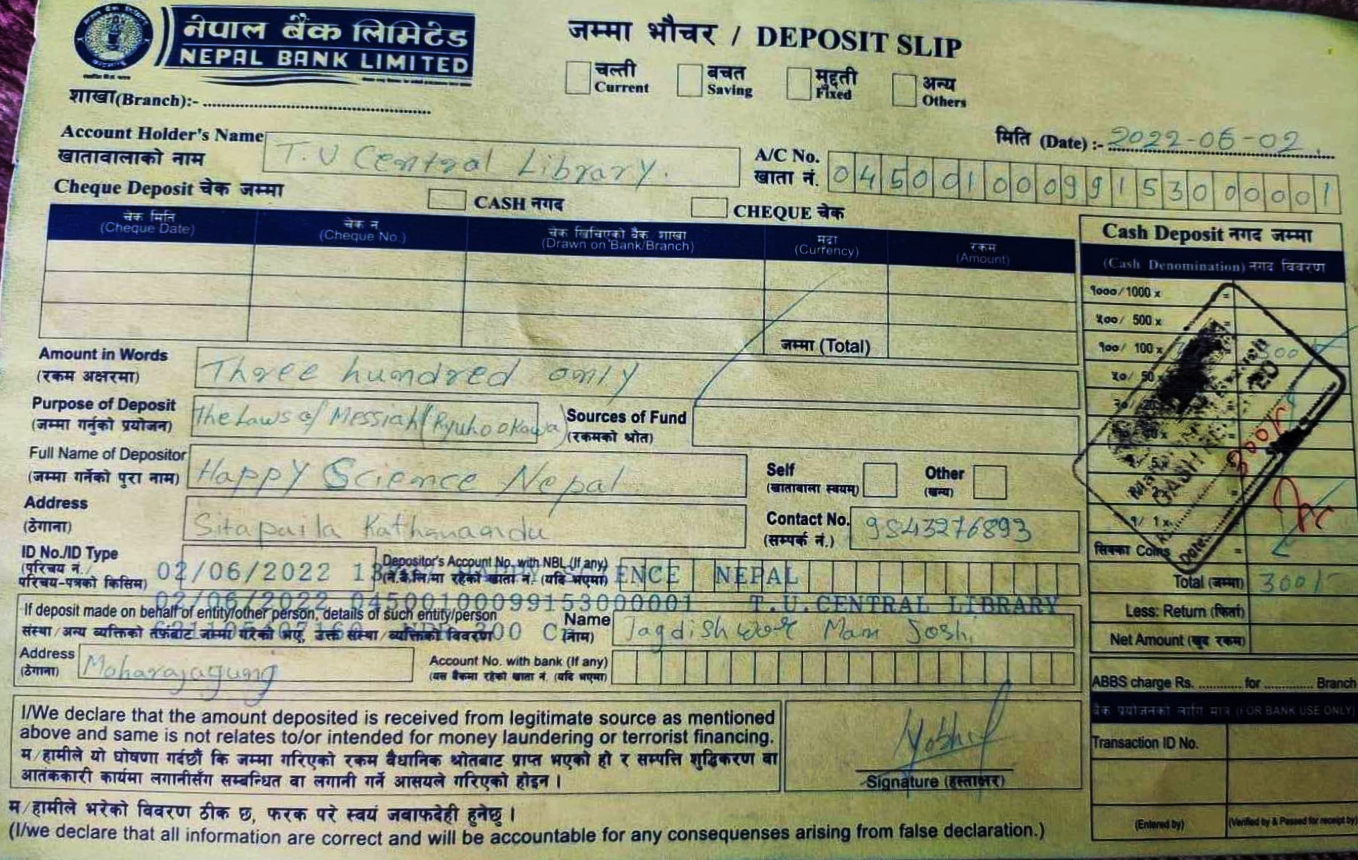 नेपाल बैंक लिमिटेड
NEPAL BANK LIMITED
जम्मा भौचर / DEPOSIT SLIP
चल्ती Current
बचत Saving
मुद्दती Fixed
अन्य Others
शाखा(Branch):-
मिति (Date) :- 2022-06-02
Account Holder's Name
खातावालाको नाम
T.U Central Library.
A/C No.
खाता नं.
04500100099153000001
Cheque Deposit चेक जम्मा
CASH नगद
CHEQUE चेक
चेक मिति (Cheque Date)
चेक नं (Cheque No.)
चेक खिचिएको बैंक शाखा (Drawn on Bank/Branch)
मुद्रा (Currency)
रकम (Amount)
जम्मा (Total)
Cash Deposit नगद जम्मा
(Cash Denomination) नगद विवरण
१०००/ 1000 x =
५००/ 500 x
१००/ 100 x 300
५०/ 50
१/ 1x
सिक्का Coins =
Total (जम्मा) 300/-
Less: Return (फिर्ता)
Net Amount (खुद रकम)
Amount in Words
(रकम अक्षरमा)
Three hundred only
Purpose of Deposit
(जम्मा गर्नुको प्रयोजन)
The Laws of Messiah (Ryuho Okawa)
Sources of Fund
(रकमको श्रोत)
Full Name of Depositor
(जम्मा गर्नेको पुरा नाम)
Happy Science Nepal
Self
(खातावाला स्वयम्)
Other
(अन्य)
Address
(ठेगाना)
Sitapaila Kathmandu
Contact No.
(सम्पर्क नं.)
9843276893
ID No./ID Type
(परिचय नं./
परिचय-पत्रको किसिम)
Depositor's Account No. with NBL (If any)
(ने.बै.लि.मा रहेको खाता नं. (यदि भएमा)
02/06/2022 ENCE NEPAL
02/06/2022 04500100099153000001 T.U CENTRAL LIBRARY
If deposit made on behalf of entity/other person, details of such entity/person
संस्था/अन्य व्यक्तिको तर्फबाट जम्मा गरेको भए, उक्त संस्था/व्यक्तिको विवरण
Name
(नाम)
Jagdish Man Joshi
Address
(ठेगाना)
Moharajagung
Account No. with bank (If any)
(यस बैंकमा रहेको खाता नं. (यदि भएमा)
ABBS charge Rs. ............ for ............ Branch
बैंक प्रयोजनको लागि मात्र (FOR BANK USE ONLY)
Transaction ID No.
(Entered by)
(Verified by & Passed for receipt by)
I/We declare that the amount deposited is received from legitimate source as mentioned
above and same is not relates to/or intended for money laundering or terrorist financing.
म/हामीले यो घोषणा गर्दछौं कि जम्मा गरिएको रकम वैधानिक श्रोतबाट प्राप्त भएको हो र सम्पत्ति शुद्धिकरण वा
आतंककारी कार्यमा लगानीसँग सम्बन्धित वा लगानी गर्ने आसयले गरिएको होइन ।
Signature (हस्ताक्षर)
म/हामीले भरेको विवरण ठीक छ, फरक परे स्वयं जवाफदेही हुनेछु ।
(I/we declare that all information are correct and will be accountable for any consequences arising from false declaration.)